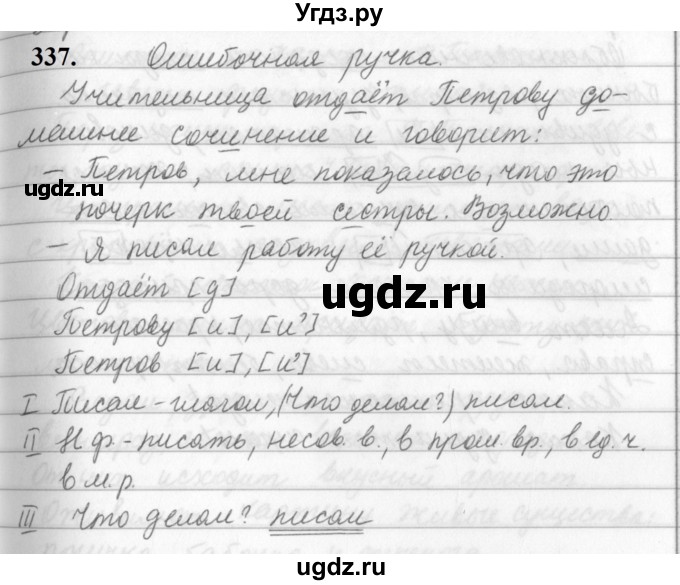 Угдз.ру
337. Ошибочная ручка.
Учительница отдаёт Петрову до-
машнее сочинение и говорит:
– Петров, мне показалось, что это
почерк твоей сестры. Возможно
– Я писал работу её ручкой.
Отдаёт [д]
Петрову [и], [и³]
Петров [и], [и³]
I Писал - глагол, (Что делал?) писал.
II Н.ф. - писать, несов. в., в прош. вр., в ед. ч.
в м.р.
III Что делал? писал
ugdz.ru
ugdz.ru
ugdz.ru